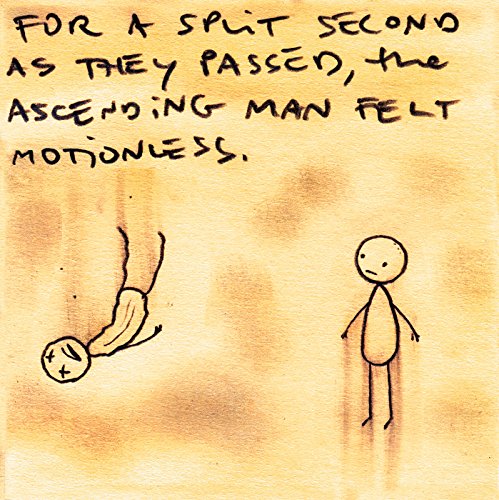 FOR A SPLIT SECOND
AS THEY PASSED, the
ASCENDING MAN FELT
MOTIONLESS.